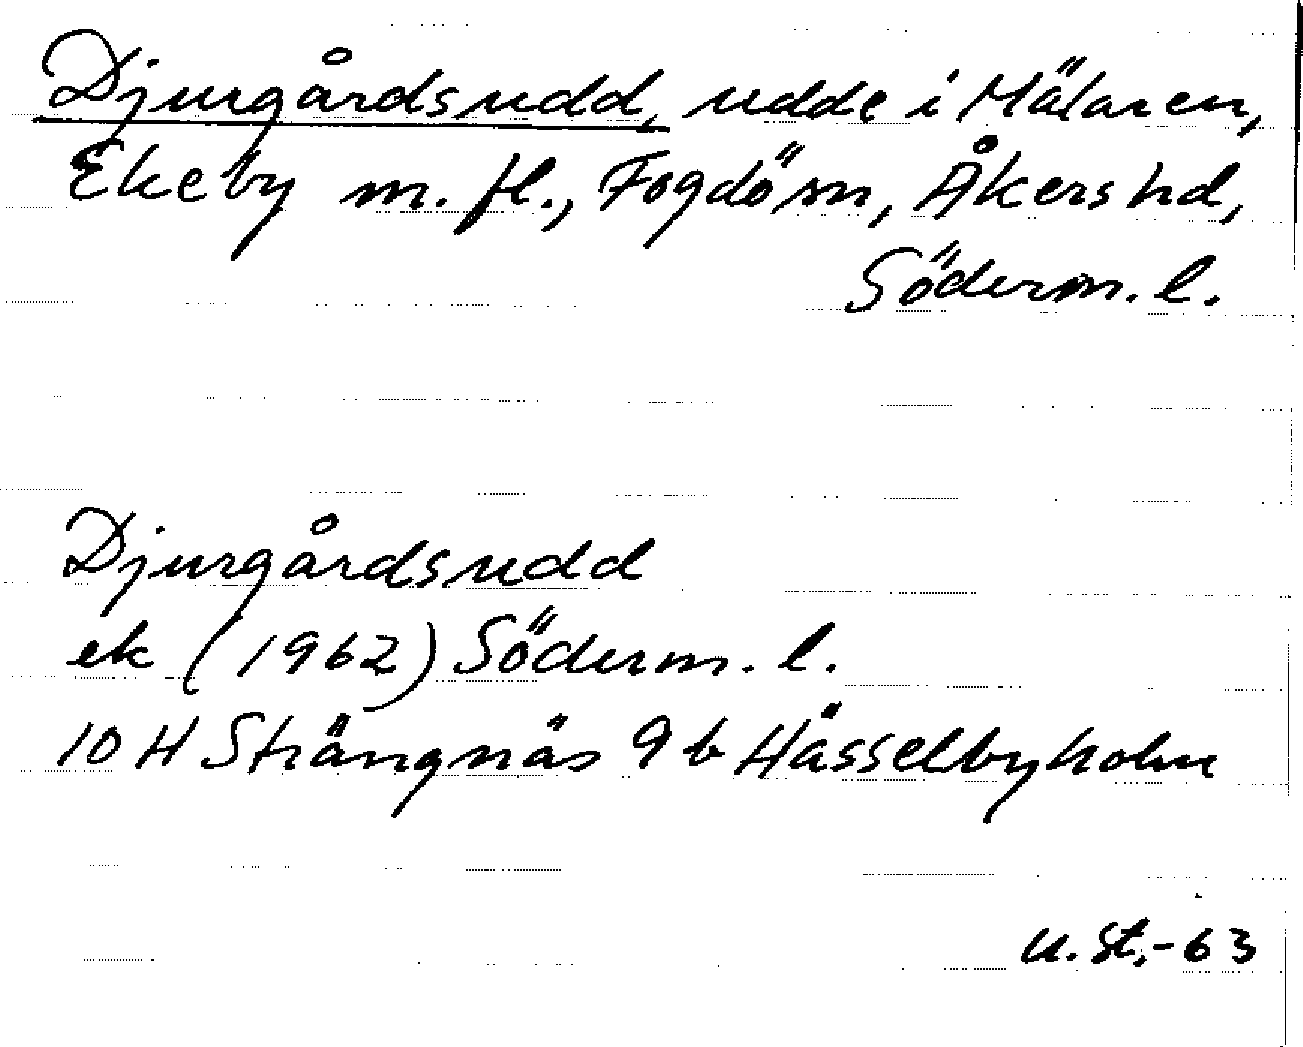 Djurgårdsudd, udde i Mälaren,
Ekeby m. fl., Fogdön, Åkers hd,
Söderm. l.
Djurgårdsudd
ek (1962) Söderm. l.
10 H Strängnäs 9 b Hässelbyholm
U. St.-63